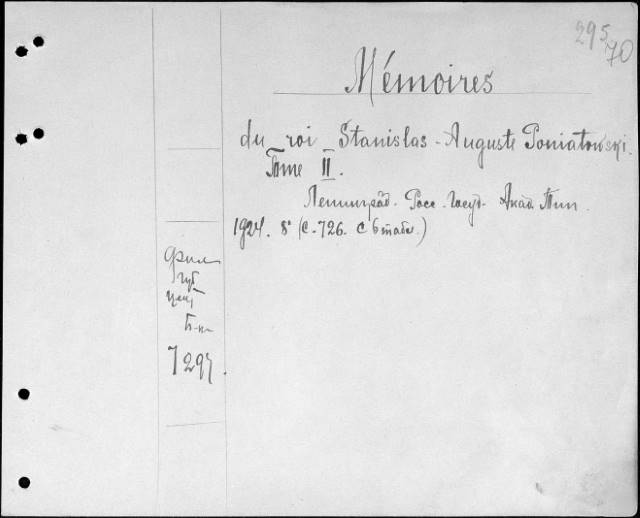 295/70
Mémoires
du roi Stanislas-Auguste Poniatowski.
Tome II.
Ленинград. Росс. Госуд. Акад. Тип.
1924. 8° (с. 726. с 6 табл.)
Фил
губ
Цент
Б-ки
7297.